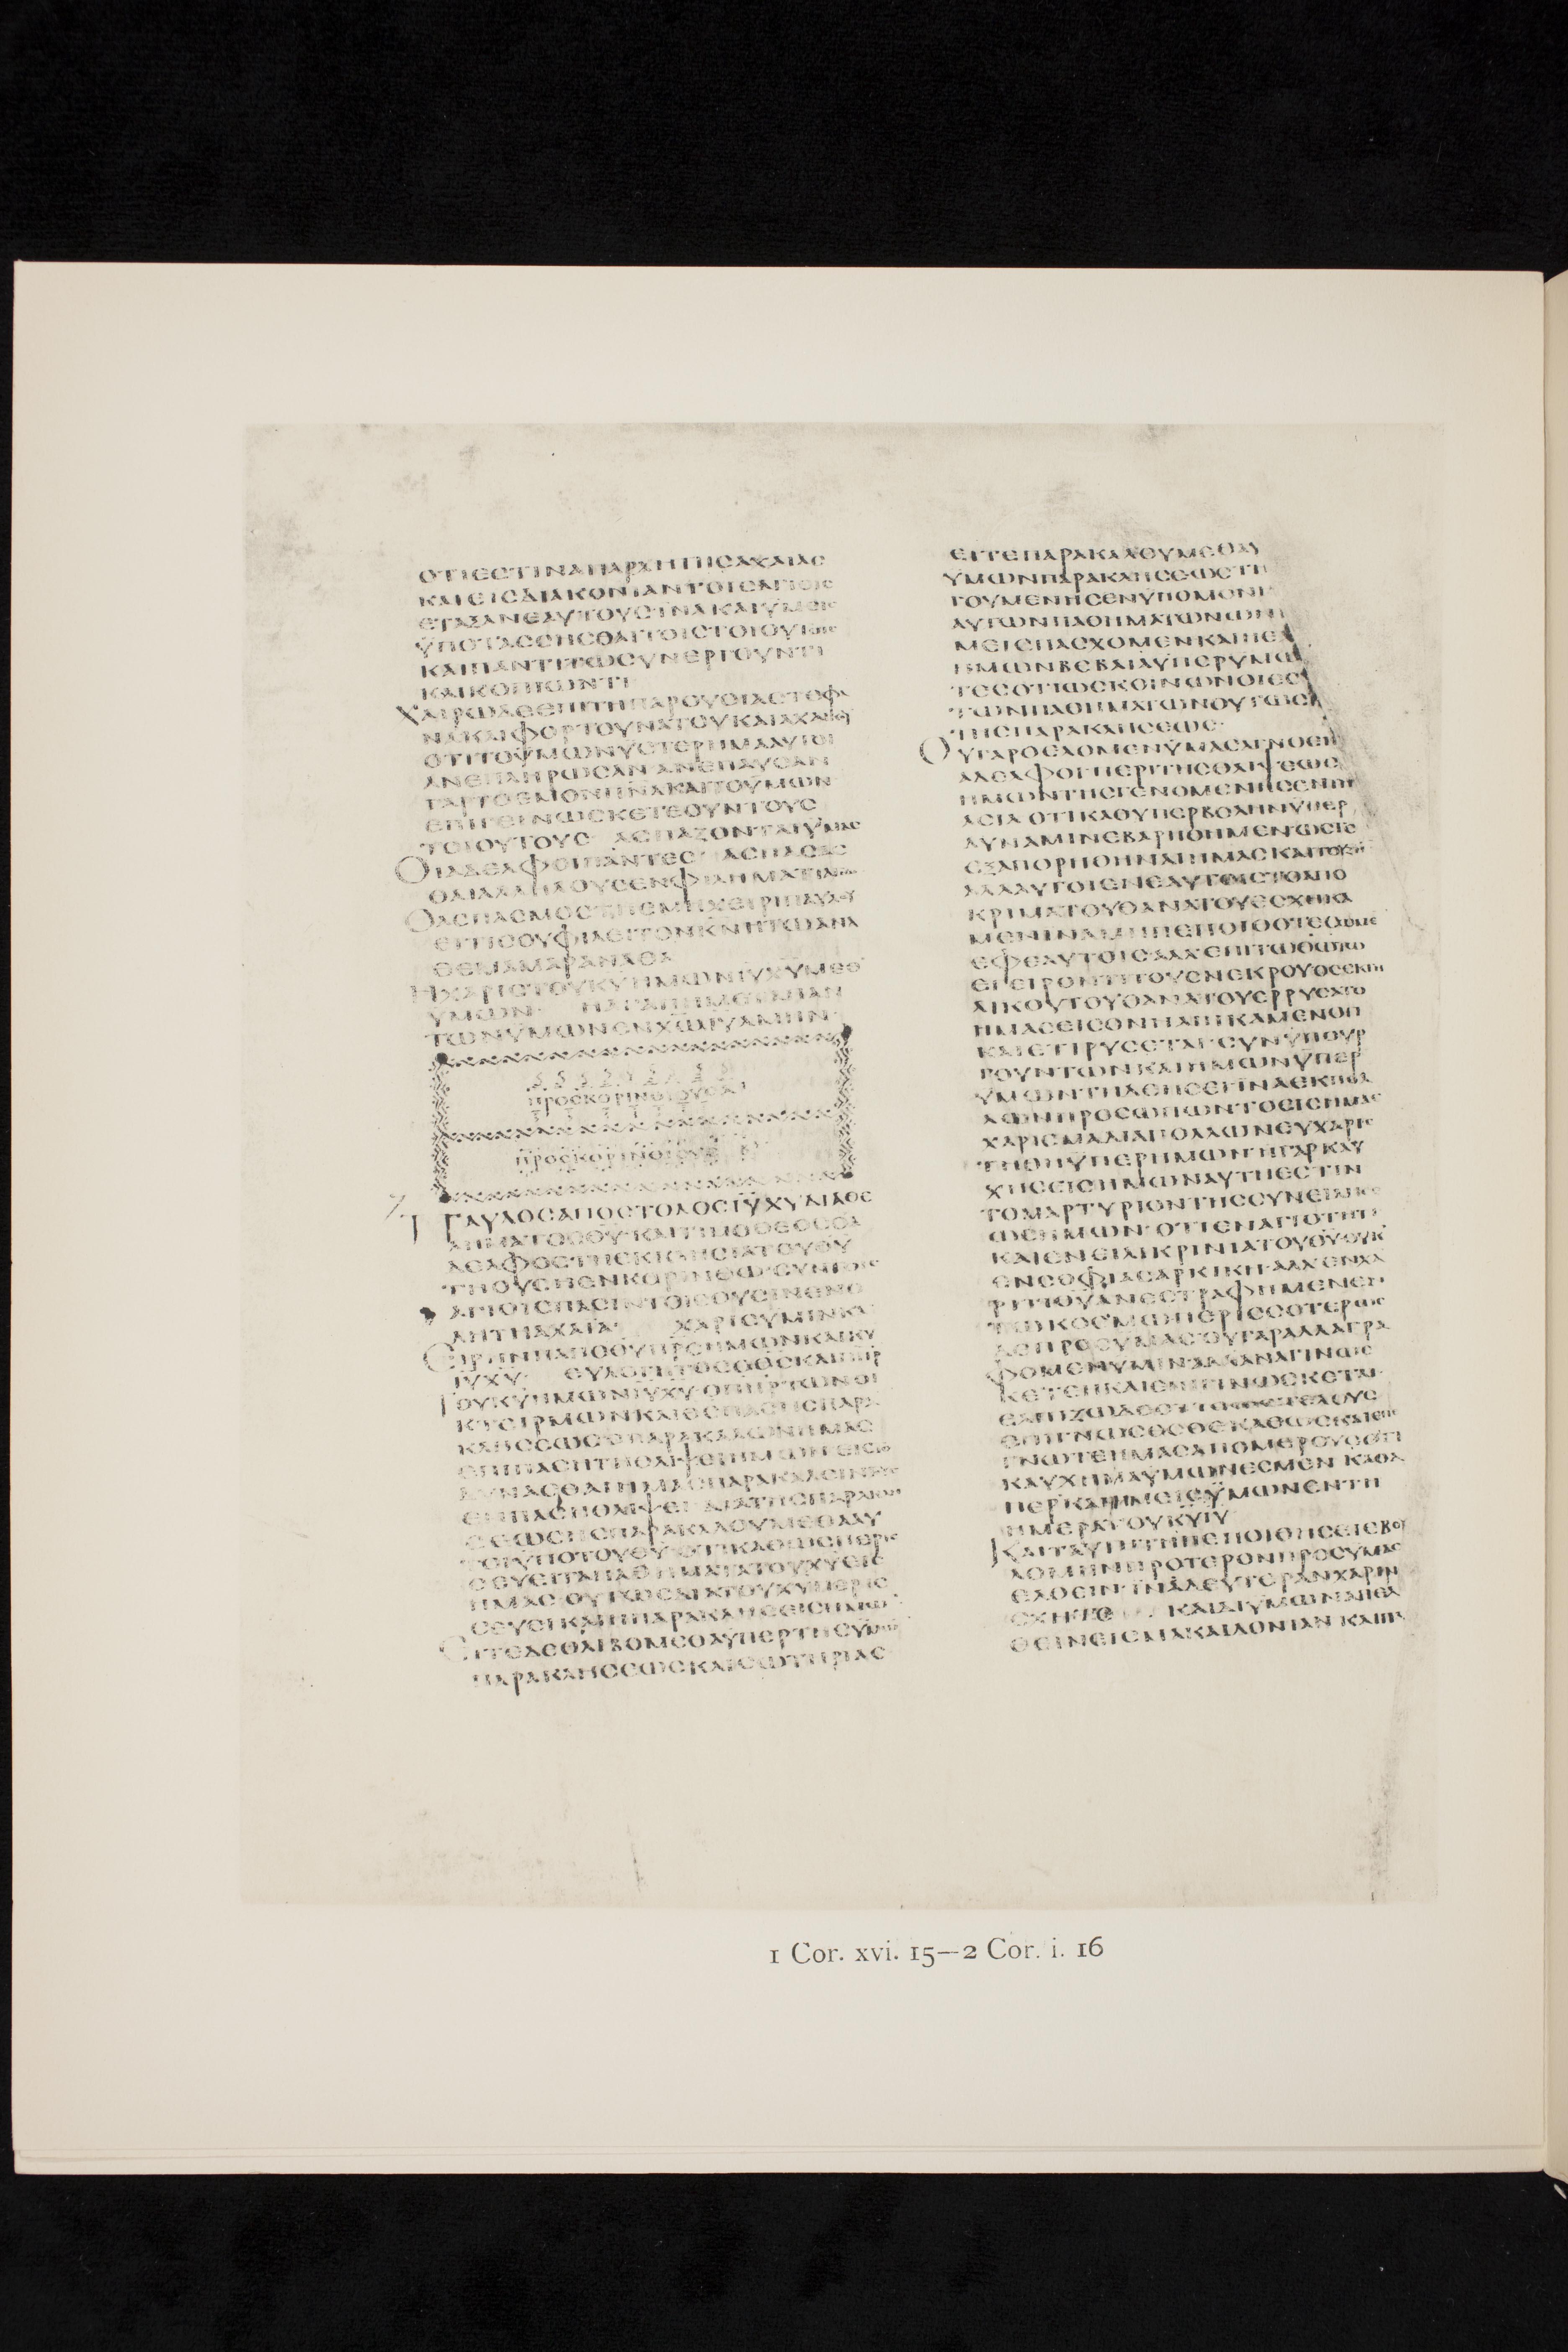 ΟΤΙΕϹΤΙΝΑΠΑΡΧΗΤΗϹΑΧΑΙΑϹ
ΚΑΙΕΙϹΔΙΑΚΟΝΙΑΝΤΟΙϹΑΓΙΟΙϹ
ΕΤΑΞΑΝΕΑΥΤΟΥϹΙΝΑΚΑΙΫΜΕΙϹ
ΫΠΟΤΑϹϹΗϹΘΑΙΤΟΙϹΤΟΙΟΥΤΟΙϹ
ΚΑΙΠΑΝΤΙΤΩϹΥΝΕΡΓΟΥΝΤΙ
ΚΑΙΚΟΠΙΩΝΤΙ
ΧΑΙΡΩΔΕΕΠΙΤΗΠΑΡΟΥϹΙΑϹΤΕΦΑ
ΝΑΚΑΙΦΟΡΤΟΥΝΑΤΟΥΚΑΙΑΧΑΙΚΟΥ
ΟΤΙΤΟΫΜΩΝΥϹΤΕΡΗΜΑΑΥΤΟΙ
ΑΝΕΠΛΗΡΩϹΑΝ ΑΝΕΠΑΥϹΑΝ
ΓΑΡΤΟΕΜΟΝΠΝΑΚΑΙΤΟΫΜΩΝ
ΕΠΙΓΕΙΝΩϹΚΕΤΕΟΥΝΤΟΥϹ
ΤΟΙΟΥΤΟΥϹ ΑϹΠΑΖΟΝΤΑΙΫΜΑϹ
ΟΙΑΔΕΛΦΟΙΠΑΝΤΕϹ ΑϹΠΑϹΑϹ
ΘΑΙΑΛΛΗΛΟΥϹΕΝΦΙΛΗΜΑΤΙΑΓΙΩ
ΟΑϹΠΑϹΜΟϹΤΗΕΜΗΧΕΙΡΙΠΑΥΛΟΥ
ΕΙΤΙϹΟΥΦΙΛΕΙΤΟΝΚΝΗΤΩΑΝΑ
ΘΕΜΑΜΑΡΑΝΑΘΑ
ΗΧΑΡΙϹΤΟΥΚΥΗΜΩΝΙΥΧΥΜΕΘ
ΥΜΩΝ Η ΑΓΑΠΗΜΟΥΜΕΤΑΠΑΝ
ΤΩΝΫΜΩΝΕΝΧΩΙΥΑΜΗΝ
ΠΡΟϹΚΟΡΙΝΘΙΟΥϹΑ
ΠΡΟϹΚΟΡΙΝΘΙΟΥϹ
ΠΑΥΛΟϹΑΠΟϹΤΟΛΟϹΙΥΧΥΔΙΑΘΕ
ΛΗΜΑΤΟϹΘΥΚΑΙΤΙΜΟΘΕΟϹΟΑ
ΔΕΛΦΟϹΤΗΕΚΚΛΗϹΙΑΤΟΥΘΥ
ΤΗΟΥϹΗΕΝΚΟΡΙΝΘΩϹΥΝΤΟΙϹ
ΑΓΙΟΙϹΠΑϹΙΝΤΟΙϹΟΥϹΙΝΕΝΟ
ΛΗΤΗΑΧΑΙΑ ΧΑΡΙϹΥΜΙΝΚΑΙ
ΕΙΡΗΝΗΑΠΟΘΥΠΡϹΗΜΩΝΚΑΙΚΥ
ΙΥΧΥ ΕΥΛΟΓΗΤΟϹΟΘϹΚΑΙΠΗΡ
ΤΟΥΚΥΗΜΩΝΙΥΧΥΟΠΗΡΤΩΝΟΙ
ΚΤΕΙΡΜΩΝΚΑΙΘϹΠΑϹΗϹΠΑΡΑ
ΚΛΗϹΕΩϹΟΠΑΡΑΚΑΛΩΝΗΜΑϹ
ΕΠΙΠΑϹΗΤΗΘΛΙΨΕΙΗΜΩΝΕΙϹΤΟ
ΔΥΝΑϹΘΑΙΗΜΑϹΠΑΡΑΚΑΛΕΙΝΤΟΥϹ
ΕΝΠΑϹΗΘΛΙΨΕΙ ΔΙΑΤΗϹΠΑΡΑΚΛΗ
ϹΕΩϹΗϹΠΑΡΑΚΑΛΟΥΜΕΘΑΑΥ
ΤΟΙΫΠΟΤΟΥΘΥ ΟΤΙΚΑΘΩϹΠΕΡΙϹ
ϹΕΥΕΙΤΑΠΑΘΗΜΑΤΑΤΟΥΧΥΕΙϹ
ΗΜΑϹΟΥΤΩϹΔΙΑΤΟΥΧΥΠΕΡΙϹ
ϹΕΥΕΙΚΑΙΗΠΑΡΑΚΛΗϹΕΙϹΗΜΩΝ
ΕΙΤΕΔΕΘΛΙΒΟΜΕΘΑΫΠΕΡΤΗϹΥΜΩΝ
ΠΑΡΑΚΛΗϹΕΩϹΚΑΙϹΩΤΗΡΙΑϹ
ΕΙΤΕΠΑΡΑΚΑΛΟΥΜΕΘΑΫ
ΫΜΩΝΠΑΡΑΚΛΗϹΕΩϹΤΗ
ΓΟΥΜΕΝΗϹΕΝΫΠΟΜΟΝΗ
ΑΥΤΩΝΠΑΘΗΜΑΤΩΝΩΝ
ΜΕΙϹΠΑϹΧΟΜΕΝΚΑΙΗΕΛ
ΗΜΩΝΒΕΒΑΙΑΫΠΕΡΥΜΩ
ΤΕϹΟΤΙΩϹΚΟΙΝΩΝΟΙΕϹ
ΤΩΝΠΑΘΗΜΑΤΩΝΟΥΤΩϹ
ΤΗϹΠΑΡΑΚΛΗϹΕΩϹ
ΟΥΓΑΡΘΕΛΟΜΕΝΫΜΑϹΑΓΝΟΕΙΝ
ΑΔΕΛΦΟΙΠΕΡΙΤΗϹΘΛΙΨΕΩϹ
ΗΜΩΝΤΗϹΓΕΝΟΜΕΝΗϹΕΝΤΗ
ΑϹΙΑ ΟΤΙΚΑΘΥΠΕΡΒΟΛΗΝΫΠΕΡ
ΔΥΝΑΜΙΝΕΒΑΡΗΘΗΜΕΝΩϹΤΕ
ΕΞΑΠΟΡΗΘΗΝΑΙΗΜΑϹΚΑΙΤΟΥΖΗ
ΑΛΛΑΑΥΤΟΙΕΝΕΑΥΤΟΙϹΤΟΑΠΟ
ΚΡΙΜΑΤΟΥΘΑΝΑΤΟΥΕϹΧΗΚΑ
ΜΕΝΙΝΑΜΗΠΕΠΟΙΘΟΤΕϹΩΜΕ
ΕΦΕΑΥΤΟΙϹΑΛΛΕΠΙΤΩΘΩΤΩ
ΕΓΕΙΡΟΝΤΙΤΟΥϹΝΕΚΡΟΥϹΟϹΕΚΤΗ
ΛΙΚΟΥΤΟΥΘΑΝΑΤΟΥΕΡΡΥϹΑΤΟ
ΗΜΑϹΕΙϹΟΝΗΛΠΙΚΑΜΕΝΟΤΙ
ΚΑΙΕΤΙΡΥϹΕΤΑΙϹΥΝΫΠΟΥΡ
ΓΟΥΝΤΩΝΚΑΙΗΜΩΝΫΠΕΡ
ΥΜΩΝΤΗΔΕΗϹΕΙΙΝΑΕΚΠΟΛ
ΛΩΝΠΡΟϹΩΠΩΝΤΟΕΙϹΗΜΑϹ
ΧΑΡΙϹΜΑΔΙΑΠΟΛΛΩΝΕΥΧΑΡΙϹ
ΤΗΘΗΫΠΕΡΗΜΩΝΗΓΑΡΚΑΥ
ΧΗϹΕΙϹΗΜΩΝΑΥΤΗΕϹΤΙΝ
ΤΟΜΑΡΤΥΡΙΟΝΤΗϹϹΥΝΕΙΔΗϹΕ
ΩϹΗΜΩΝ ΟΤΙΕΝΑΓΙΟΤΗΤΙ
ΚΑΙΕΝΕΙΛΙΚΡΙΝΙΑΤΟΥΘΥΟΥΚ
ΕΝϹΟΦΙΑϹΑΡΚΙΚΗ ΑΛΛΕΝΧΑ
ΡΙΤΙΘΥΑΝΕϹΤΡΑΦΗΜΕΝΕΝ
ΤΩΚΟϹΜΩΠΕΡΙϹϹΟΤΕΡΩϹ
ΔΕΠΡΟϹΥΜΑϹΟΥΓΑΡΑΛΛΑΓΡΑ
ΦΟΜΕΝΥΜΙΝΑΛΛΑΝΑΓΙΝΩϹ
ΚΕΤΕΗΚΑΙΕΠΙΓΙΝΩϹΚΕΤΑΙ
ΕΛΠΙΖΩΔΕΟΤΙΕΩϹΤΕΛΟΥϹ
ΕΠΙΓΝΩϹΕϹΘΕΚΑΘΩϹΚΑΙΕΠΕ
ΓΝΩΤΕΗΜΑϹΑΠΟΜΕΡΟΥϹΟΤΙ
ΚΑΥΧΗΜΑΫΜΩΝΕϹΜΕΝ ΚΑΘΑ
ΠΕΡΚΑΙΗΜΕΙϹΫΜΩΝΕΝΤΗ
ΗΜΕΡΑΤΟΥΚΥΙΥ
ΚΑΙΤΑΥΤΗΤΗΠΕΠΟΙΘΗϹΕΙΕΒΟΥ
ΛΟΜΗΝΠΡΟΤΕΡΟΝΠΡΟϹΥΜΑϹ
ΕΛΘΕΙΝΙΝΑΔΕΥΤΕΡΑΝΧΑΡΙΝ
ϹΧΗΤΕ ΚΑΙΔΙΥΜΩΝΑΠΕΛ
ΘΕΙΝΕΙϹΜΑΚΑΙΔΟΝΙΑΝ ΚΑΙΠΑ
1 Cor. xvi. 15—2 Cor. i. 16